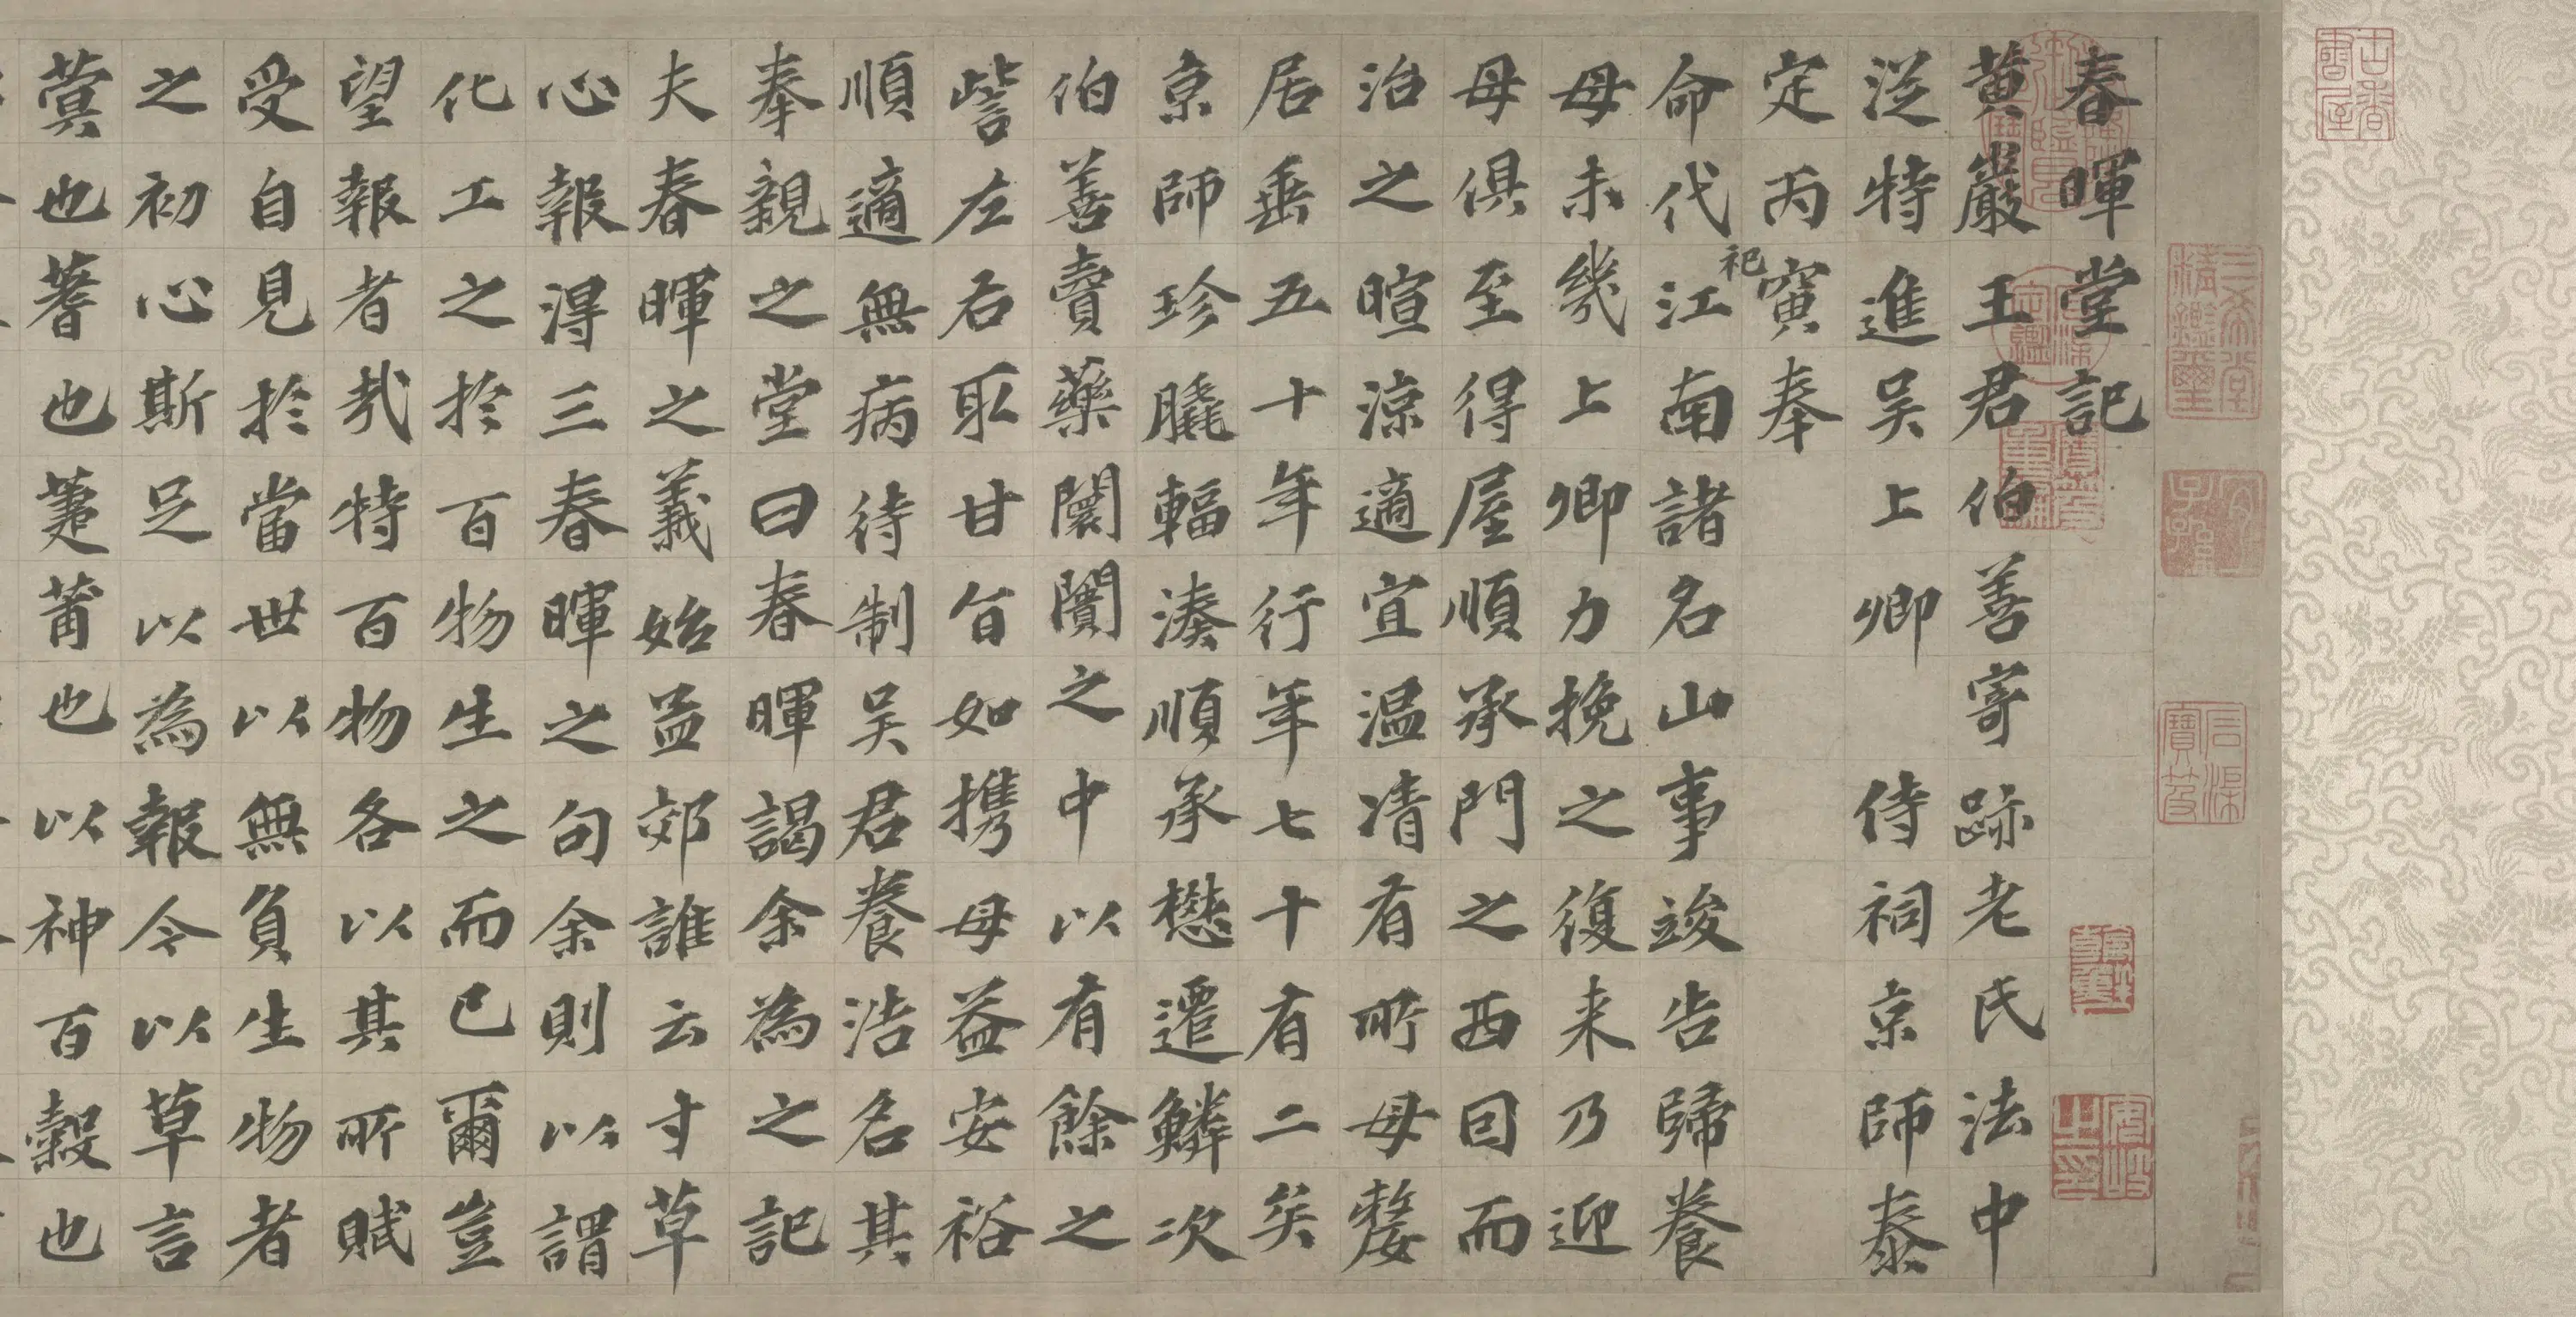 春暉堂記
黃巖王君伯善寄跡老氏法中
從特進吴上卿 侍祠京師泰
定丙寅奉
命代祀江南諸名山事竣告歸養
母未幾上卿力挽之復来乃迎
母俱至得屋順承門之西囙而
治之暄涼適宜温凊有所母嫠
居垂五十年行年七十有二矣
京師珍膬輻湊順承懋遷鱗次
伯善賣藥闤闠之中以有餘之
訾左右取甘旨如携母益安裕
順適無病待制吴君養浩名其
奉親之堂曰春暉謁余為之記
夫春暉之義始孟郊誰云寸草
心報得三春暉之句余則以謂
化工之於百物生之而已爾豈
望報者哉特百物各以其所賦
受自見於當世以無負生物者
之初心斯足以為報今以草言
蓂也蓍也萐莆也以神百穀也
古香書屋
三希堂精鑑璽
宜子孫
石渠寶笈